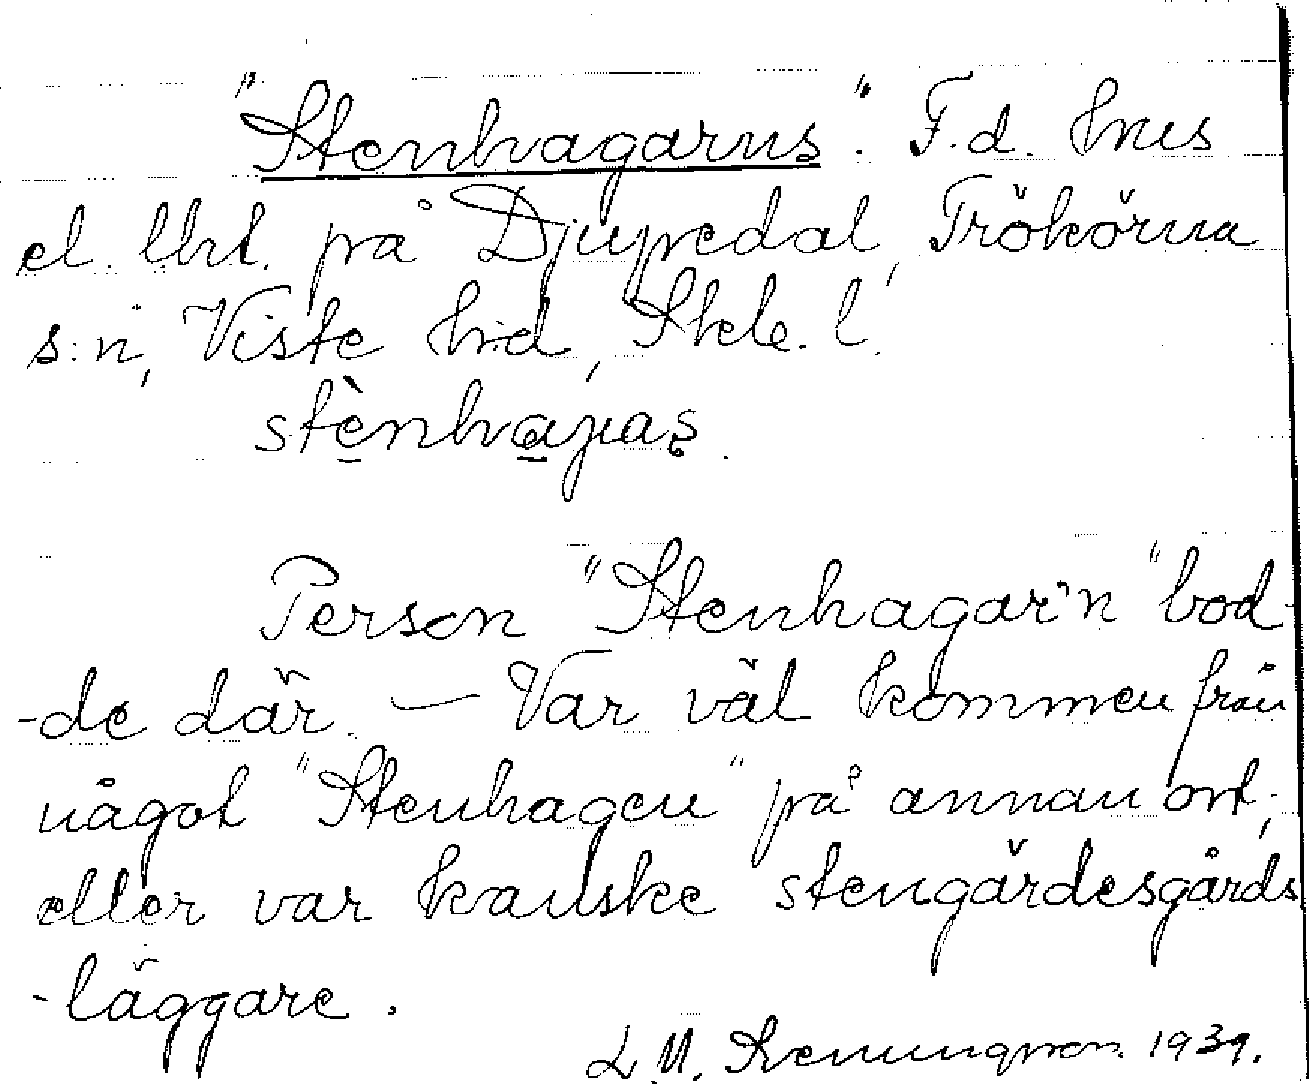 "Stenhagarns". F.d. hus
el. lht. på Djupedal, Trökörna
s:n, Viste hd, Skbg. l.
stènhaɲas.
Person "Stenhagar'n" bod-
-de där. — Var väl kommen från
något "Stenhagen" på annan ort,
eller var kanske stengärdesgårds
-läggare.
L.M. 1939.